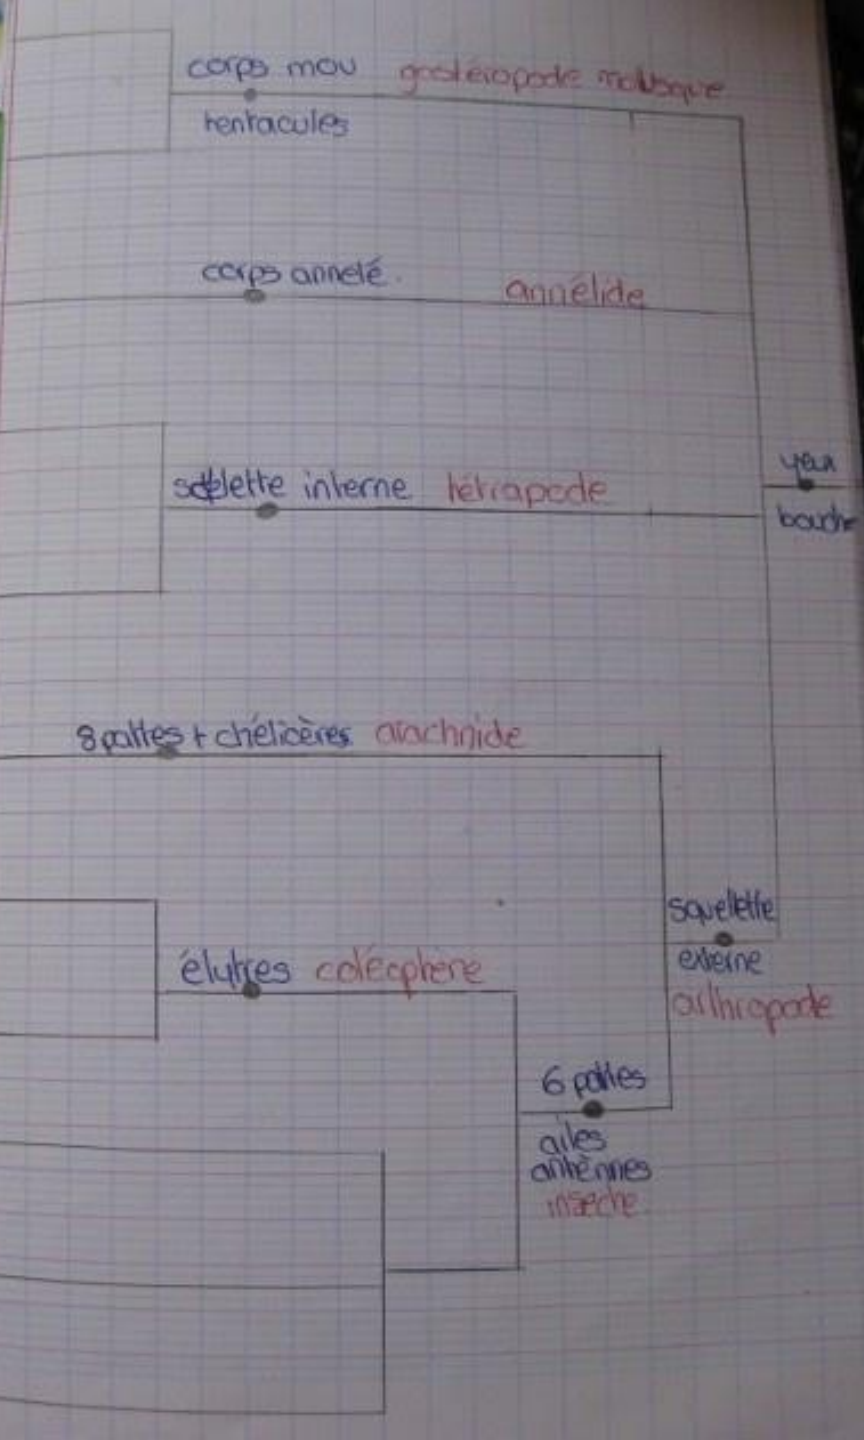 corps mou gastéropode mollusque
tentacules
corps annelé.
annélide
yeux
bouche
squelette interne tétrapode
8 pattes + chélicères arachnide
squelette
externe
arthropode
élytres coléoptère
6 pattes
ailes
antènnes
insecte